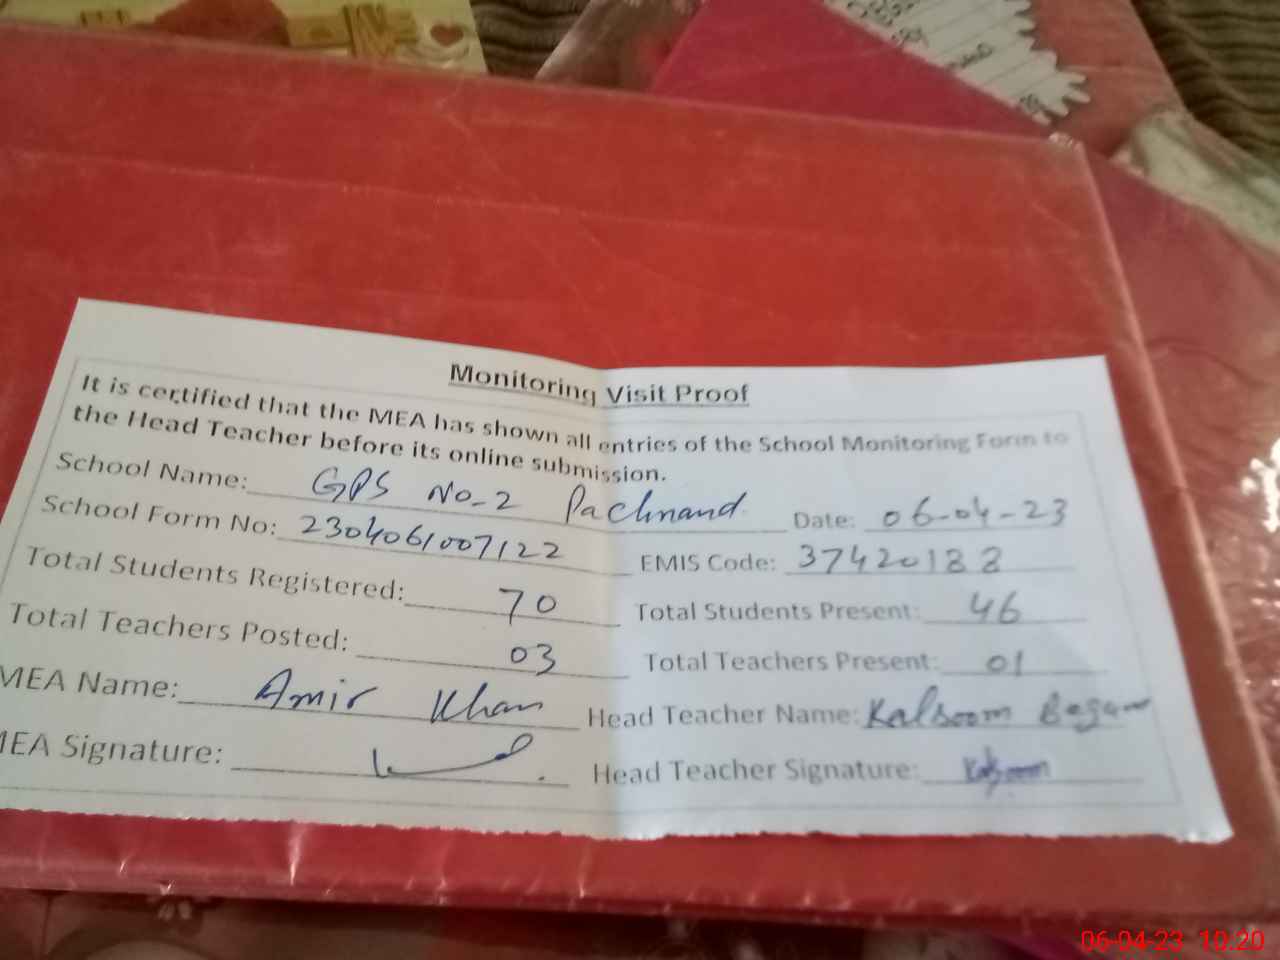 Monitoring Visit Proof
It is certified that the MEA has shown all entries of the School Monitoring Form to
the Head Teacher before its online submission.
School Name: GPS No-2 Pachnand Date: 06-04-23
School Form No: 2304061007122 EMIS Code: 37420188
Total Students Registered: 70 Total Students Present: 46
Total Teachers Posted: 03 Total Teachers Present: 01
MEA Name: Amir Khan Head Teacher Name: Kalsoom Begum
MEA Signature: Head Teacher Signature: Kalsoom
06-04-23 10:20